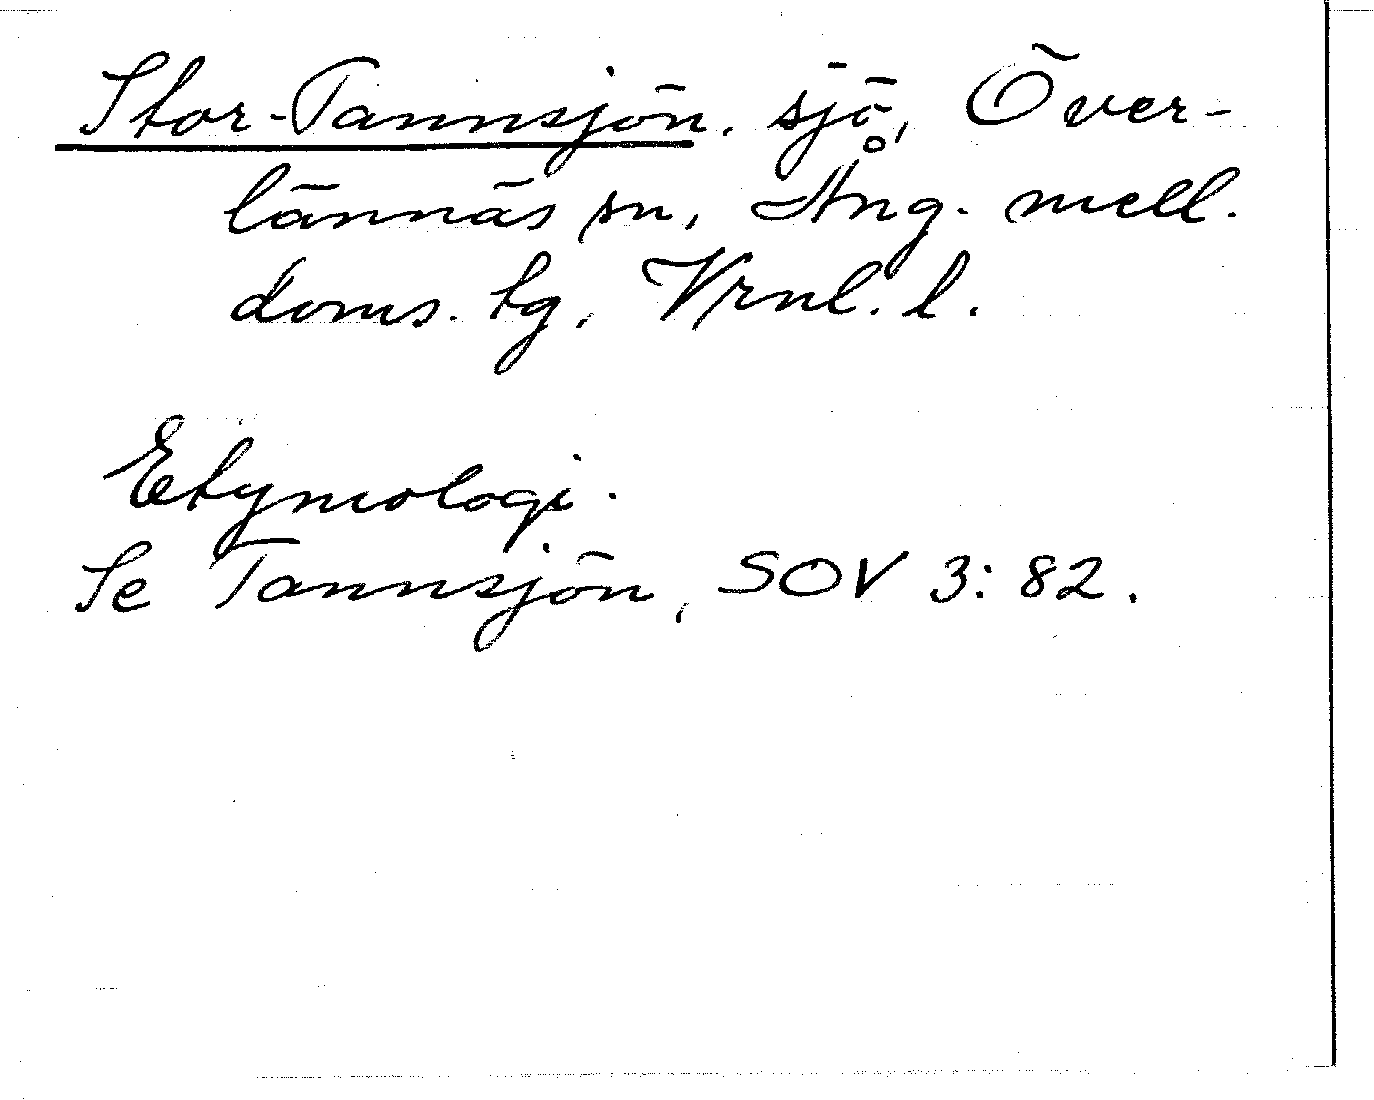 Stor-Tannsjön. sjö, Över-
lännäs sn, Ång. mell.
doms. tg, Vrnl. l.
Etymologi.
Se Tannsjön, SOV 3: 82.